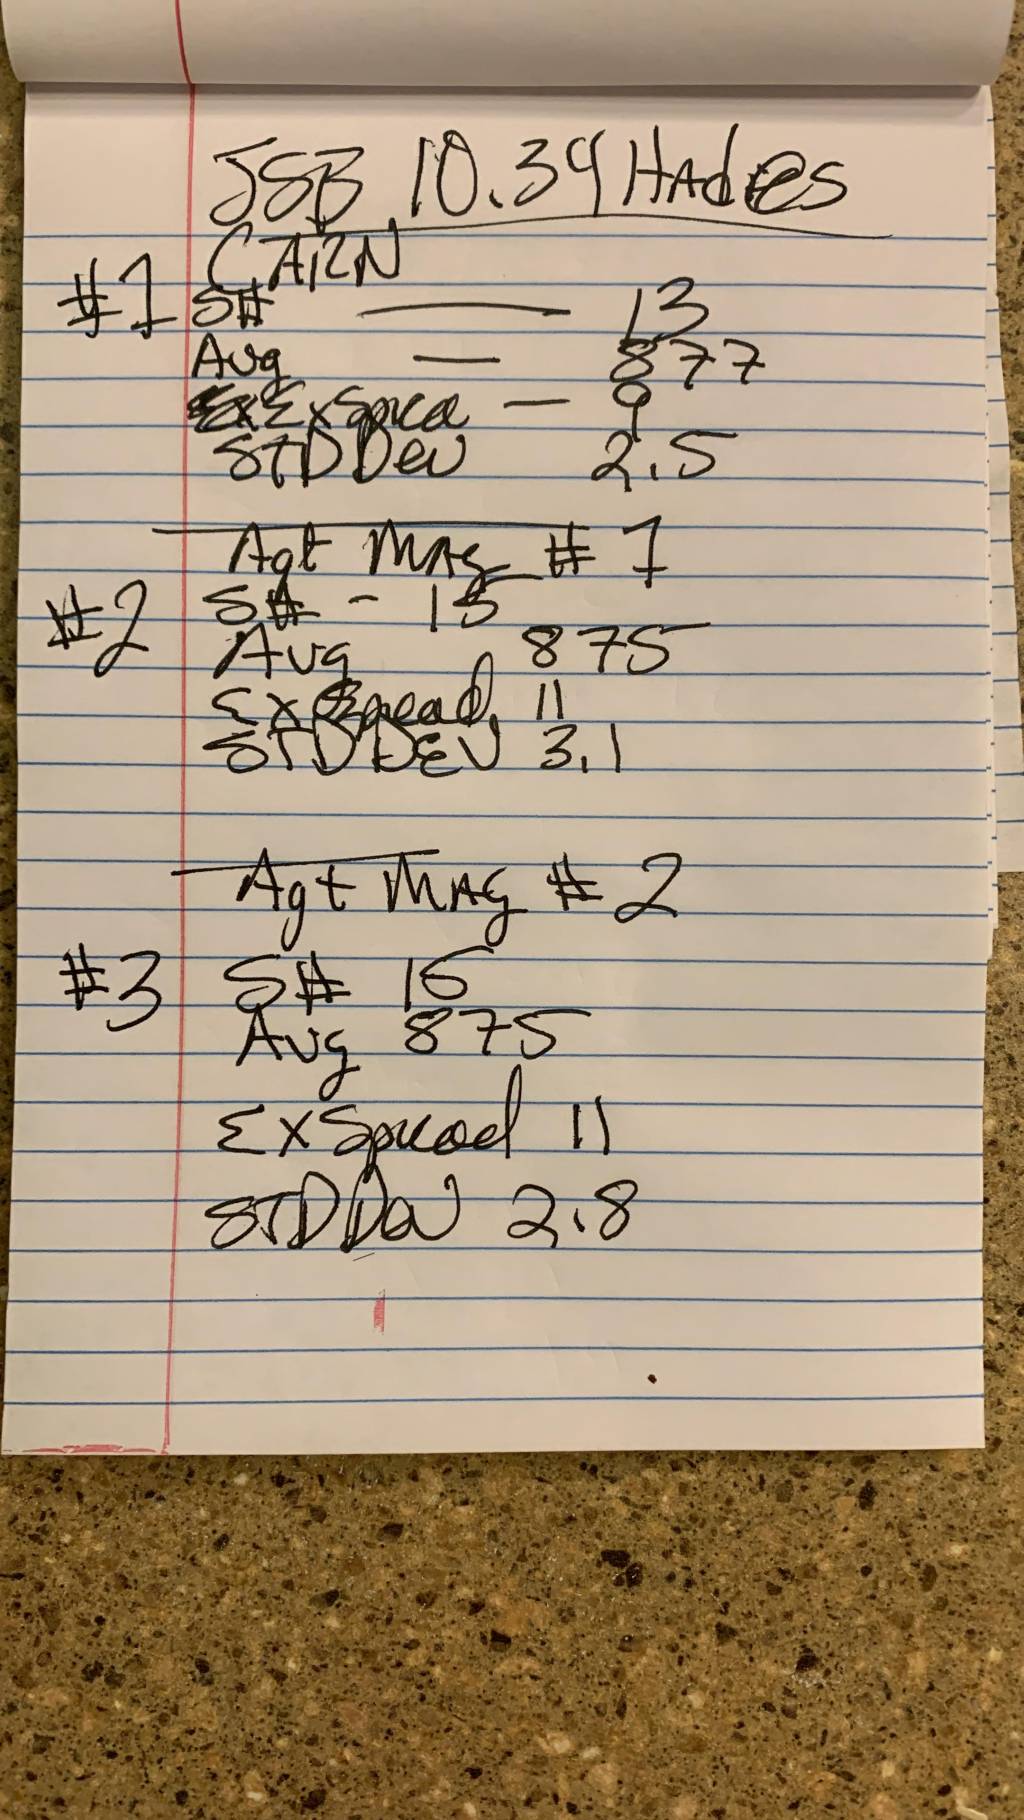 JSB 10.34 HAdes
CARN
#1 S# — 13
Avg — 877
ExSprea — 9
STD Dev 2.5
Agt MAg # 1
#2 S# - 15
Avg 875
Ex Spread 11
STD DEV 3.1
Agt MAg # 2
#3 S# 15
Avg 875
Ex Spread 11
STD Dev 2.8